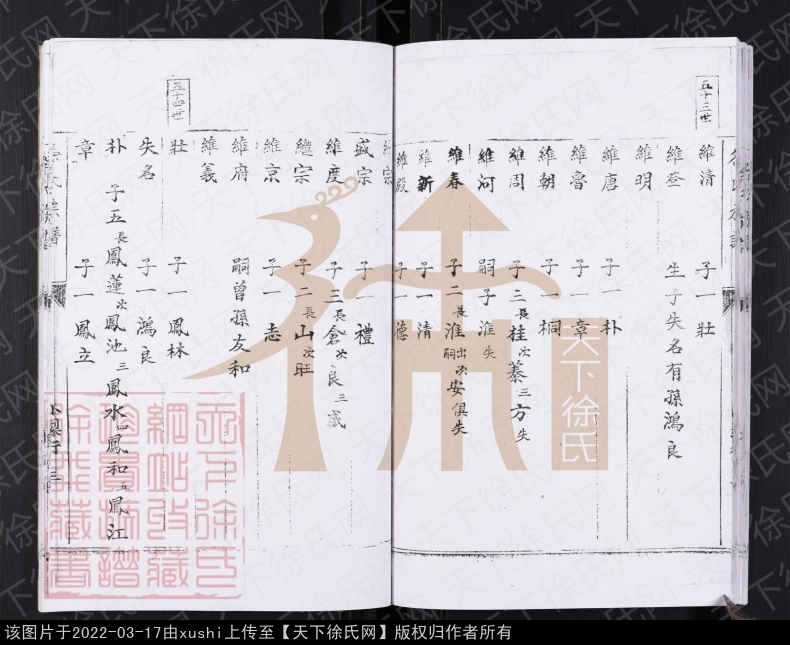 五十三世
維清 子一壯
維登 生子失名有孫鴻良
維明
維唐 子一朴
維魯 子一章
維朝 子一桐
維周 子三長桂次蓁三方失
維河 嗣子淮失
維春 子二長淮出嗣次安俱失
維新 子一清
維殿 子一德
盛宗 子一禮
維度 子三長倉次良三盛
繼宗 子二長山次旺
維京 子一志
維府 嗣曾孫友和
維義
五十四世
壯 子一鳳林
失名 子一鴻良
朴 子五長鳳蓮次鳳池三鳳水四鳳和五鳳江
章 子一鳳立
天下徐氏
天下徐氏网
该图片于2022-03-17由xushi上传至【天下徐氏网】版权归作者所有